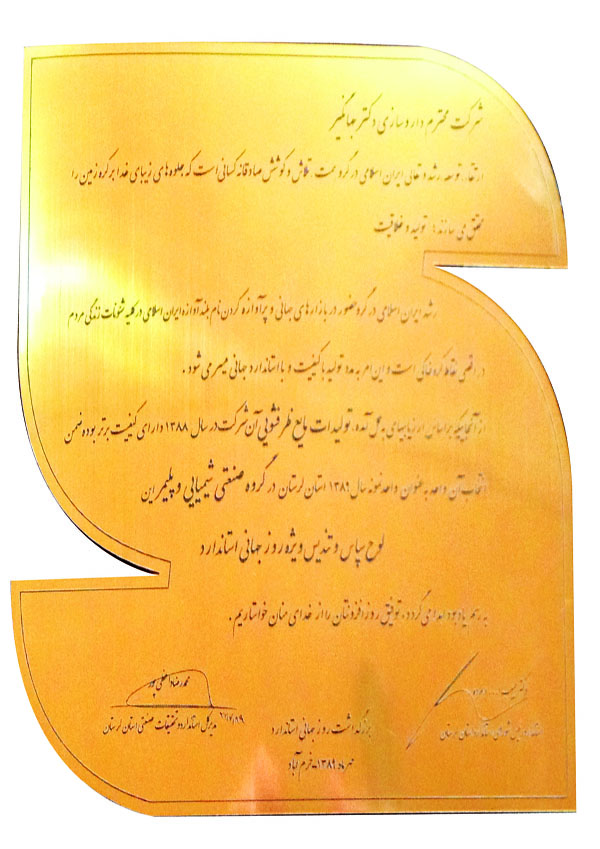 شرکت محترم داروسازی دکتر جهانگیر
ارتقاء، توسعه، رشد و تعالی ایران اسلامی در گرو همت، تلاش و کوشش صادقانه کسانی است که جلوه‌های زیبای خدا بر کره زمین را
محقق می سازند: تولید و خلاقیت
رشد ایران اسلامی در گرو حضور در بازارهای جهانی و پرآوازه کردن نام بلندآوازه ایران اسلامی در کلیه شئونات زندگی مردم
در اقصی نقاط کره خاکی است و این امر به مدد تولید باکیفیت و با استاندارد جهانی میسر می شود.
از آنجائیکه براساس ارزیابیهای به عمل آمده، تولیدات مایع ظرفشویی آن شرکت در سال ۱۳۸۸ دارای کیفیت برتر بوده ضمن
انتخاب آن واحد به عنوان واحد نمونه سال ۱۳۸۹ استان لرستان در گروه صنعتی شیمیایی و پلیمر این
لوح سپاس و تندیس ویژه روز جهانی استاندارد
به رسم یادبود اهدای گردد، توفیق روزافزونتان را از خدای منان خواستاریم.
محمدرضا
مدیرکل استاندارد و تحقیقات صنعتی استان لرستان
استاندار و رئیس شورای استاندارد استان لرستان
بزرگداشت روز جهانی استاندارد
مهرماه ۱۳۸۹-خرم آباد